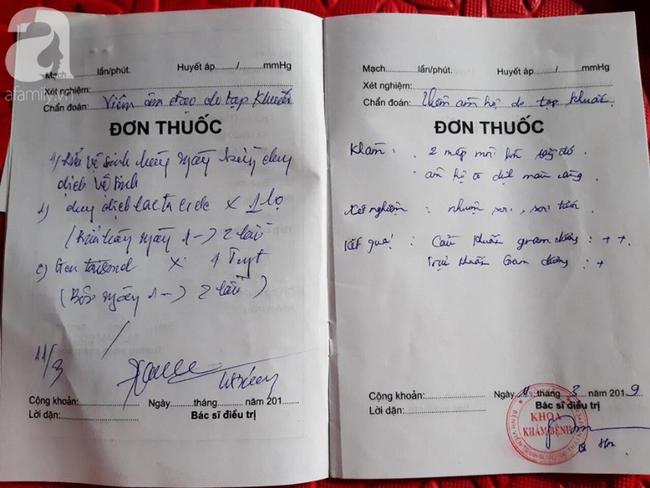 a
afamily.vn
Mạch............lần/phút. Huyết áp ......./.......mmHg
Xét nghiệm:
Chẩn đoán: Viêm âm đạo do tạp khuẩn
ĐƠN THUỐC
vệ sinh hàng ngày bằng dung
dịch vệ sinh
1) dung dịch lactacide x 1 lọ
ngày 1 -> 2 lần
2) x 1 Tuýp
(Bôi ngày 1 -> 2 lần)
11/3
Cộng khoản: Ngày......tháng......năm 201...
Lời dặn: Bác sĩ điều trị
Mạch............lần/phút. Huyết áp ......./.......mmHg
Xét nghiệm:
Chẩn đoán: Viêm âm hộ do tạp khuẩn
ĐƠN THUỐC
Khám: 2 mép môi lớn
âm hộ dịch màu vàng
Xét nghiệm: nhuộm soi, soi tươi
Kết quả: Cầu khuẩn gram dương: ++
Trực khuẩn Gram dương: +
Cộng khoản: Ngày 11 tháng 3 năm 2019
Lời dặn: Bác sĩ điều trị
KHOA
KHÁM BỆNH